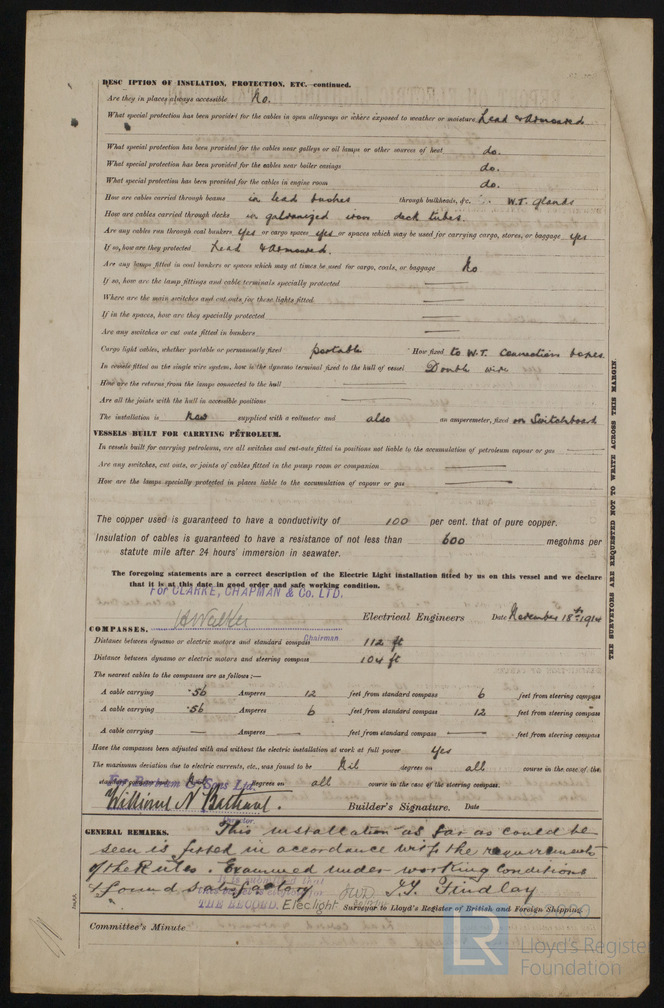 DESC IPTION OF INSULATION, PROTECTION, ETC.—continued.
Are they in places always accessible No.
What special protection has been provided for the cables in open alleyways or where exposed to weather or moisture Lead & Armoured
What special protection has been provided for the cables near galleys or oil lamps or other sources of heat do.
What special protection has been provided for the cables near boiler casings do.
What special protection has been provided for the cables in engine room do.
How are cables carried through beams in lead bushes through bulkheads, &c. W.T. glands
How are cables carried through decks in galvanized iron deck tubes.
Are any cables run through coal bunkers yes or cargo spaces yes or spaces which may be used for carrying cargo, stores, or baggage yes
If so, how are they protected Lead & Armoured.
Are any lamps fitted in coal bunkers or spaces which may at times be used for cargo, coals, or baggage No
If so, how are the lamp fittings and cable terminals specially protected
Where are the main switches and cut outs for these lights fitted
If in the spaces, how are they specially protected
Are any switches or cut outs fitted in bunkers
Cargo light cables, whether portable or permanently fixed portable How fixed to W.T. connection boxes.
In vessels fitted on the single wire system, how is the dynamo terminal fixed to the hull of vessel Double wire
How are the returns from the lamps connected to the hull
Are all the joints with the hull in accessible positions
The installation is supplied with a voltmeter and also an amperemeter, fixed on Switchboard
VESSELS BUILT FOR CARRYING PETROLEUM.
In vessels built for carrying petroleum, are all switches and cut-outs fitted in positions not liable to the accumulation of petroleum vapour or gas
Are any switches, cut outs, or joints of cables fitted in the pump room or companion
How are the lamps specially protected in places liable to the accumulation of vapour or gas
The copper used is guaranteed to have a conductivity of 100 per cent. that of pure copper.
Insulation of cables is guaranteed to have a resistance of not less than 600 megohms per
statute mile after 24 hours' immersion in seawater.
The foregoing statements are a correct description of the Electric Light installation fitted by us on this vessel and we declare
that it is at this date in good order and safe working condition.
For CLARKE, CHAPMAN & Co. LTD.
Electrical Engineers Date November 18th 1914
COMPASSES. Chairman
Distance between dynamo or electric motors and standard compass 112 ft
Distance between dynamo or electric motors and steering compass 104 ft
The nearest cables to the compasses are as follows:—
A cable carrying .56 Amperes 12 feet from standard compass 6 feet from steering compass
A cable carrying .56 Amperes 6 feet from standard compass 12 feet from steering compass
A cable carrying — Amperes — feet from standard compass — feet from steering compass
Have the compasses been adjusted with and without the electric installation at work at full power Yes
The maximum deviation due to electric currents, etc., was found to be Nil degrees on all course in the case of the
standard compass and Nil degrees on all course in the case of the steering compass.
Sons Ltd
Builder's Signature. Date
Director.
GENERAL REMARKS. This installation as far as could be
seen is fitted in accordance with the requirements
of the Rules. Examined under working conditions
& found satisfactory
It is submitted that
THE RECORD. Elec. light
J.T. Findlay
Surveyor to Lloyd's Register of British and Foreign Shipping.
Committee's Minute
THE SURVEYORS ARE REQUESTED NOT TO WRITE ACROSS THIS MARGIN.
LR
Lloyd's Register
Foundation